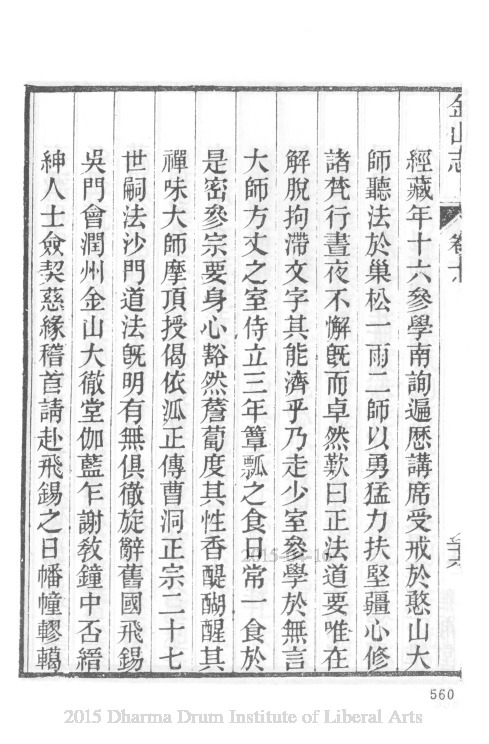 金山志
卷
經藏年十六參學南詢遍歷講席受戒於憨山大
師聽法於巢松一雨二師以勇猛力扶堅疆心修
諸梵行晝夜不懈旣而卓然歎曰正法道要唯在
解脫拘滯文字其能濟乎乃走少室參學於無言
大師方丈之室侍立三年簞瓢之食日常一食於
是密參宗要身心豁然薝蔔度其性香醍醐醒其
禪味大師摩頂授偈依派正傳曹洞正宗二十七
世嗣法沙門道法旣明有無俱徹旋辭舊國飛錫
吳門會潤州金山大徹堂伽藍乍謝敎鐘中否縉
紳人士僉契慈緣稽首請赴飛錫之日幡幢轇轕
560
2015 Dharma Drum Institute of Liberal Arts